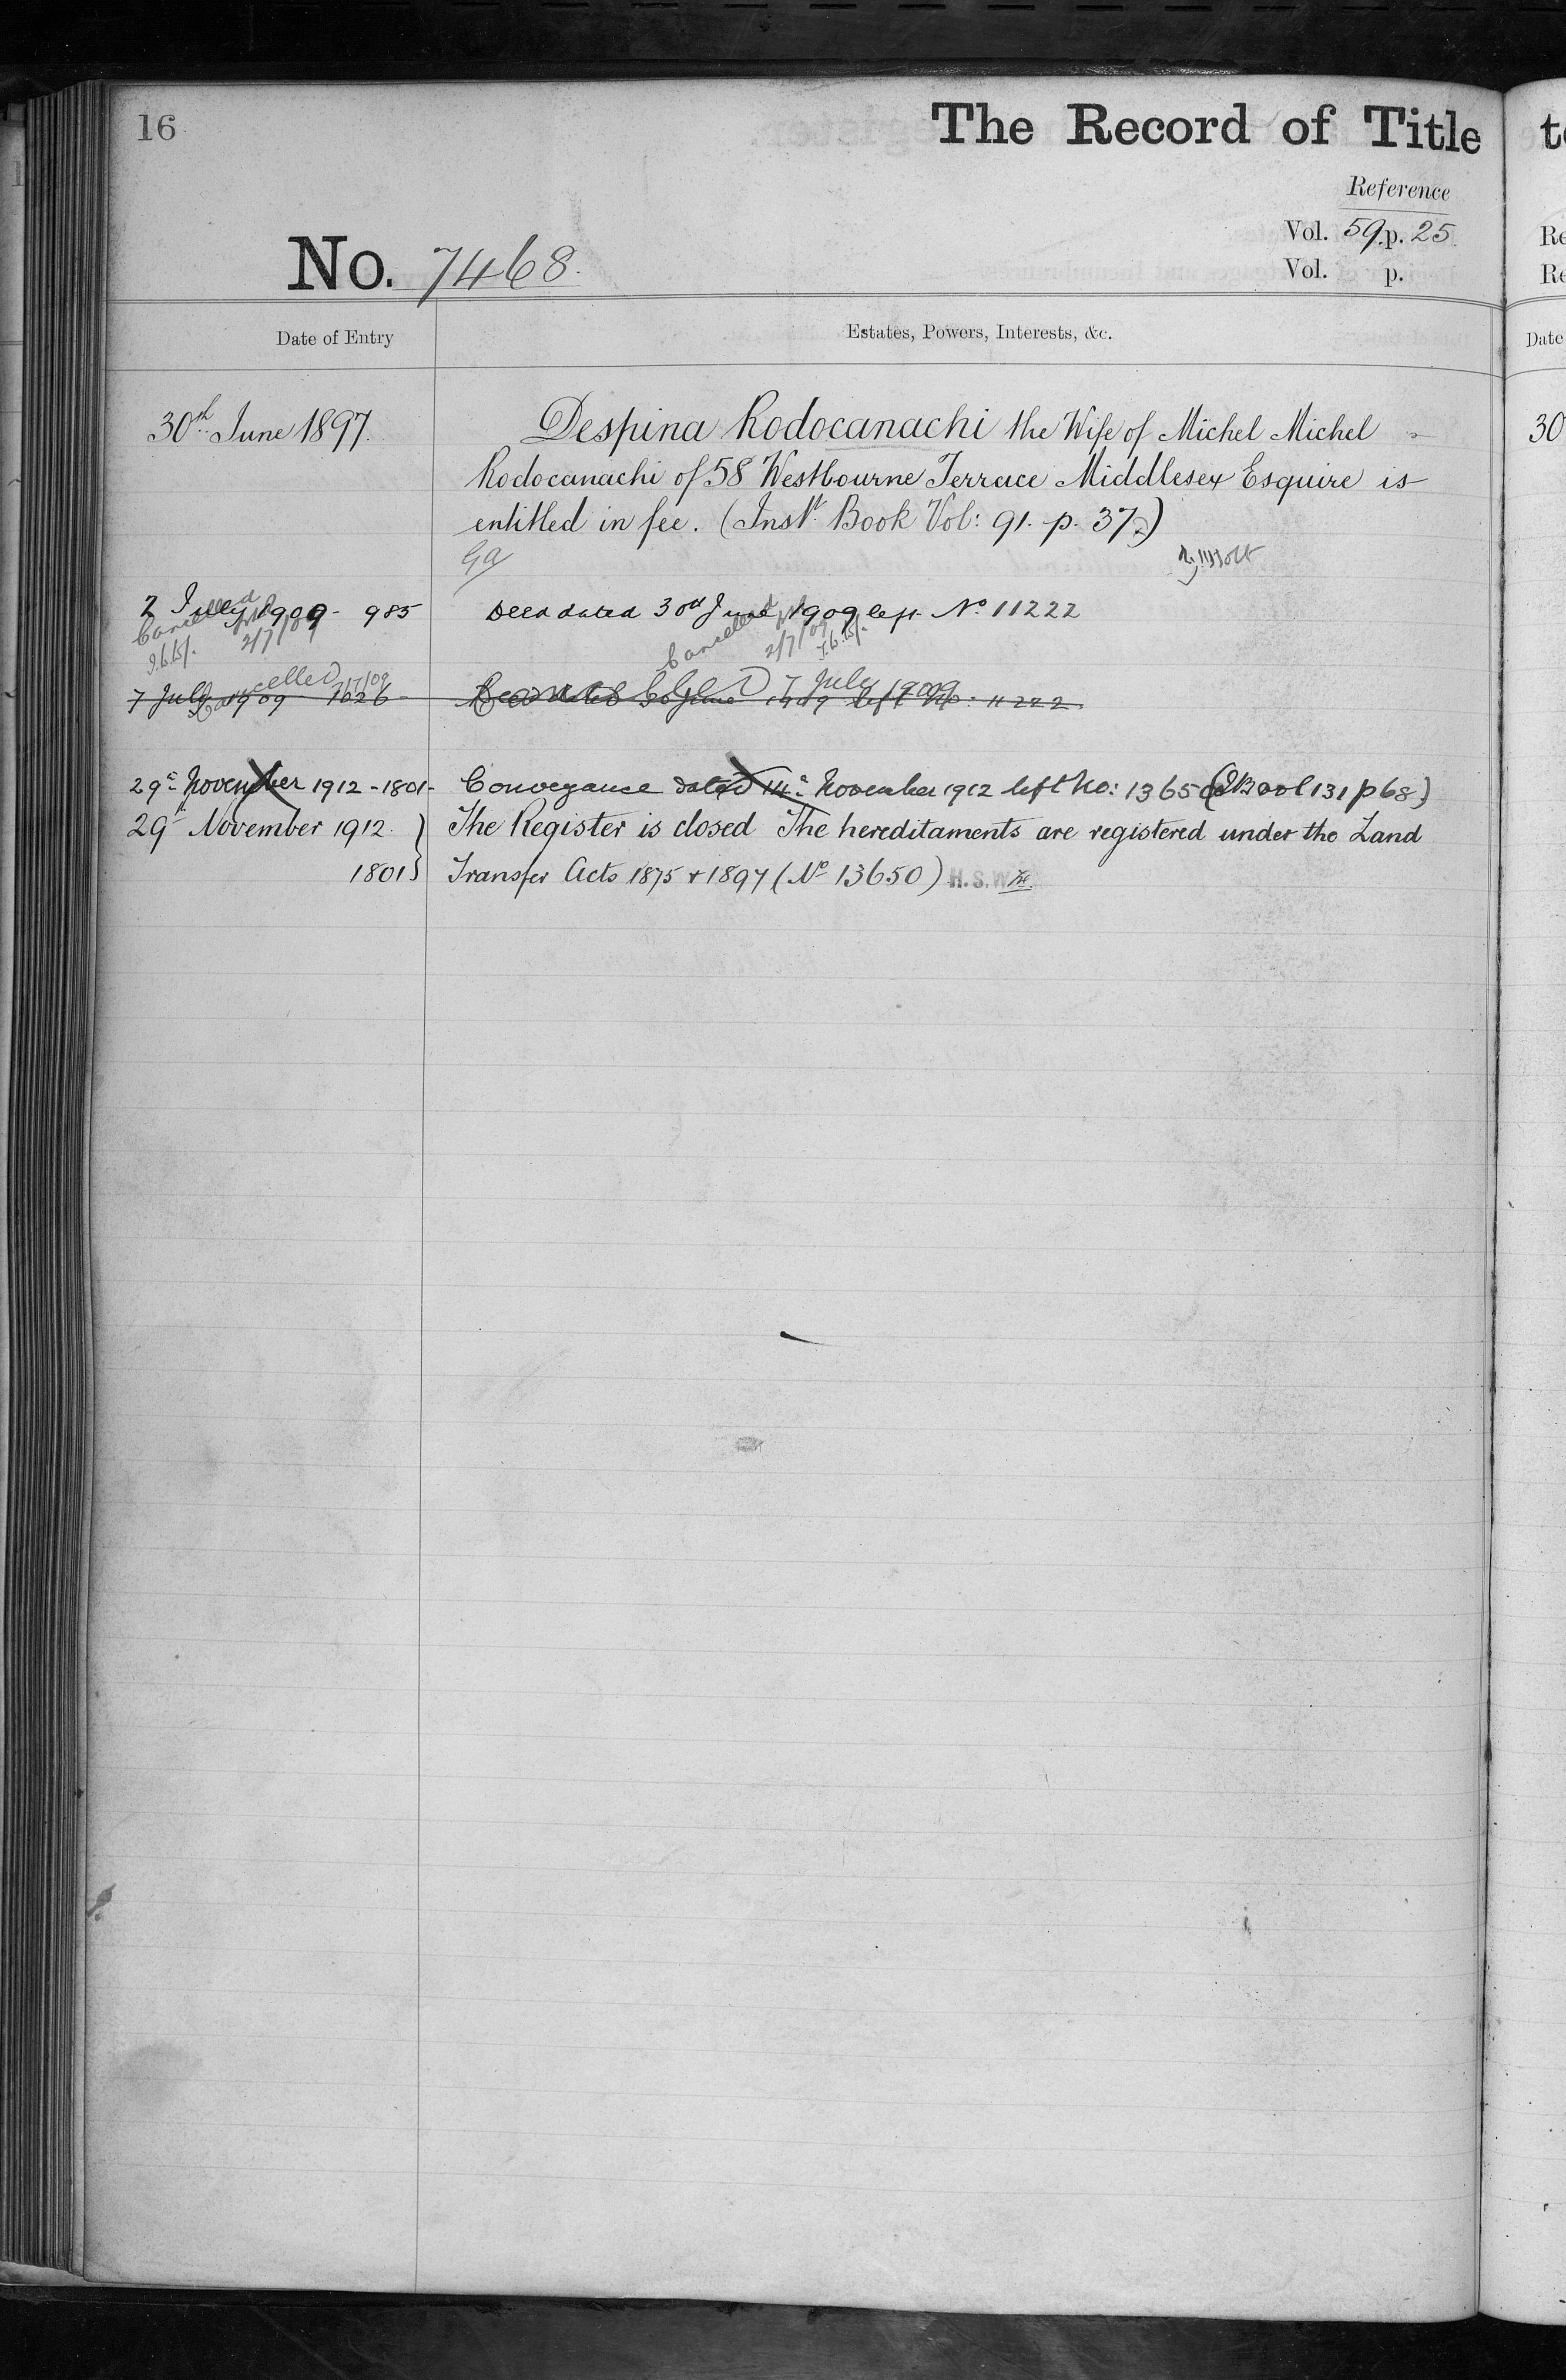 16
The Record of Title
Reference
Vol. 59. p. 25
Vol. p.
No. 7468.
Date of Entry
Estates, Powers, Interests, &c.
30th June 1897.
Despina Rodocanachi the Wife of Michel Michel
Rodocanachi of 58 Westbourne Terrace Middlesex Esquire is
entitled in fee. (Inst. Book Vol: 91. p. 37.)
2 July 1909 - 985
Deed dated 30th June 1909 left No 11222
Cancelled
2/7/09
Cancelled
2/7/09
7 July 1909 1026
Deed dated 30 June 1909 left No: 11222
Cancelled 7/7/09
Cancelled 7 July 1909
29th November 1912 - 1801 -
Conveyance dated 14th November 1912 left No: 13650 (IB vol 131 p 68)
29th November 1912
The Register is closed The hereditaments are registered under the Land
1801
Transfer Acts 1875 & 1897 (No 13650) H.S.W
Date
30